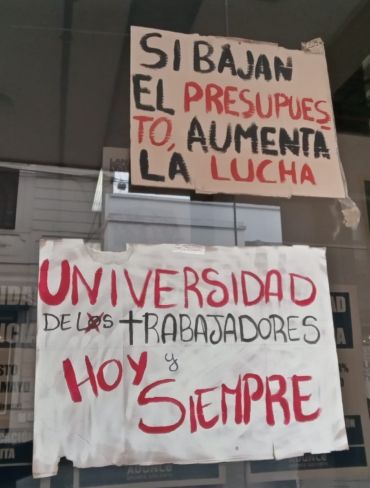 SI BAJAN
EL PRESUPUES
TO, AUMENTA
LA LUCHA
UNIVERSIDAD
DE LXS TRABAJADORES
HOY y
SIEMPRE